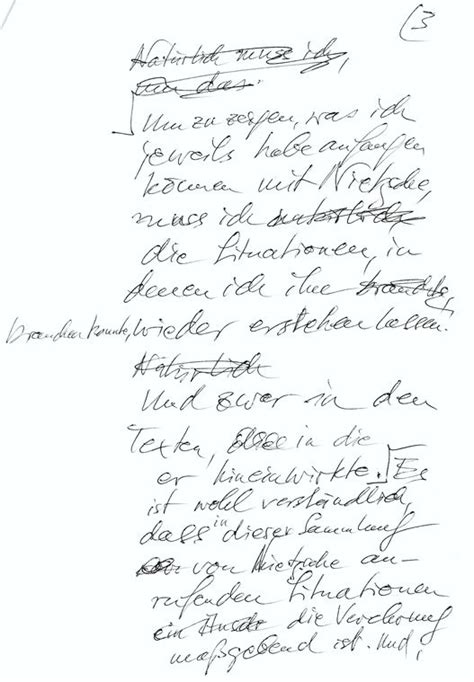 (3
Natürlich muss ich,
um das.
Um zu zeigen, was ich
jeweils habe anfangen
können mit Nietzsche,
muss ich natürlich
die Situationen, in
denen ich ihn brauchte,
brauchen konnte, wieder erstehen lassen.
Natürlich
Und zwar in den
Texten, in die
er hineinwirkte. Es
ist wohl verständlich,
dass in dieser Sammlung
von Nietzsche an-
rufenden Situationen
ein die Verehrung
maßgebend ist. Und,